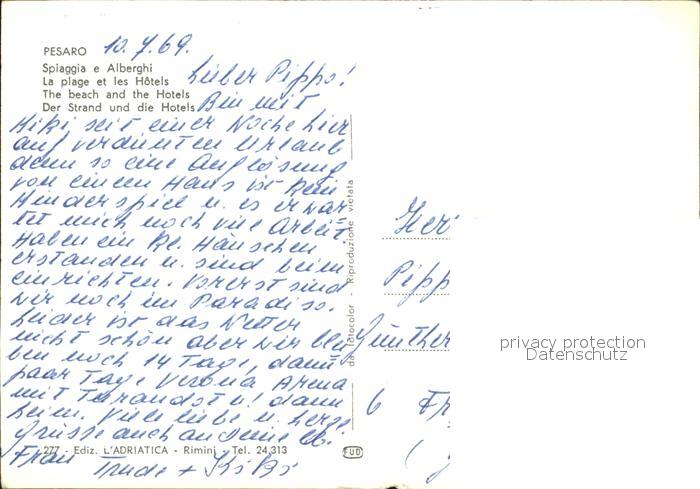 PESARO 10.7.69.
Spiaggia e Alberghi
La plage et les Hôtels
The beach and the Hotels
Der Strand und die Hotels
Lieber Pippo!
Bin mit
Kiki seit einer Woche hier
auf verdienten Urlaub
denn so eine Auflösung
von einem Haus ist kein
Kinderspiel u. es erwar=
tet mich noch viel Arbeit.
Haben ein kl. Häuschen
erstanden u. sind beim
einrichten. Vorerst sind
wir noch im Paradiso.
Leider ist das Wetter
nicht schön aber wir blei
ben noch 14 Tage, dann
paar Tage Verona Arena
mit Turandot u! dann
heim. Viele liebe u. herzl
Grüsse auch an Deine lb.
Frau Trude + Kiki
277 - Ediz. L'ADRIATICA - Rimini - Tel. 24.313
da fotocolor - Riproduzione vietata
FUD
Her
Pipp
Günther
6 Fr
privacy protection
Datenschutz